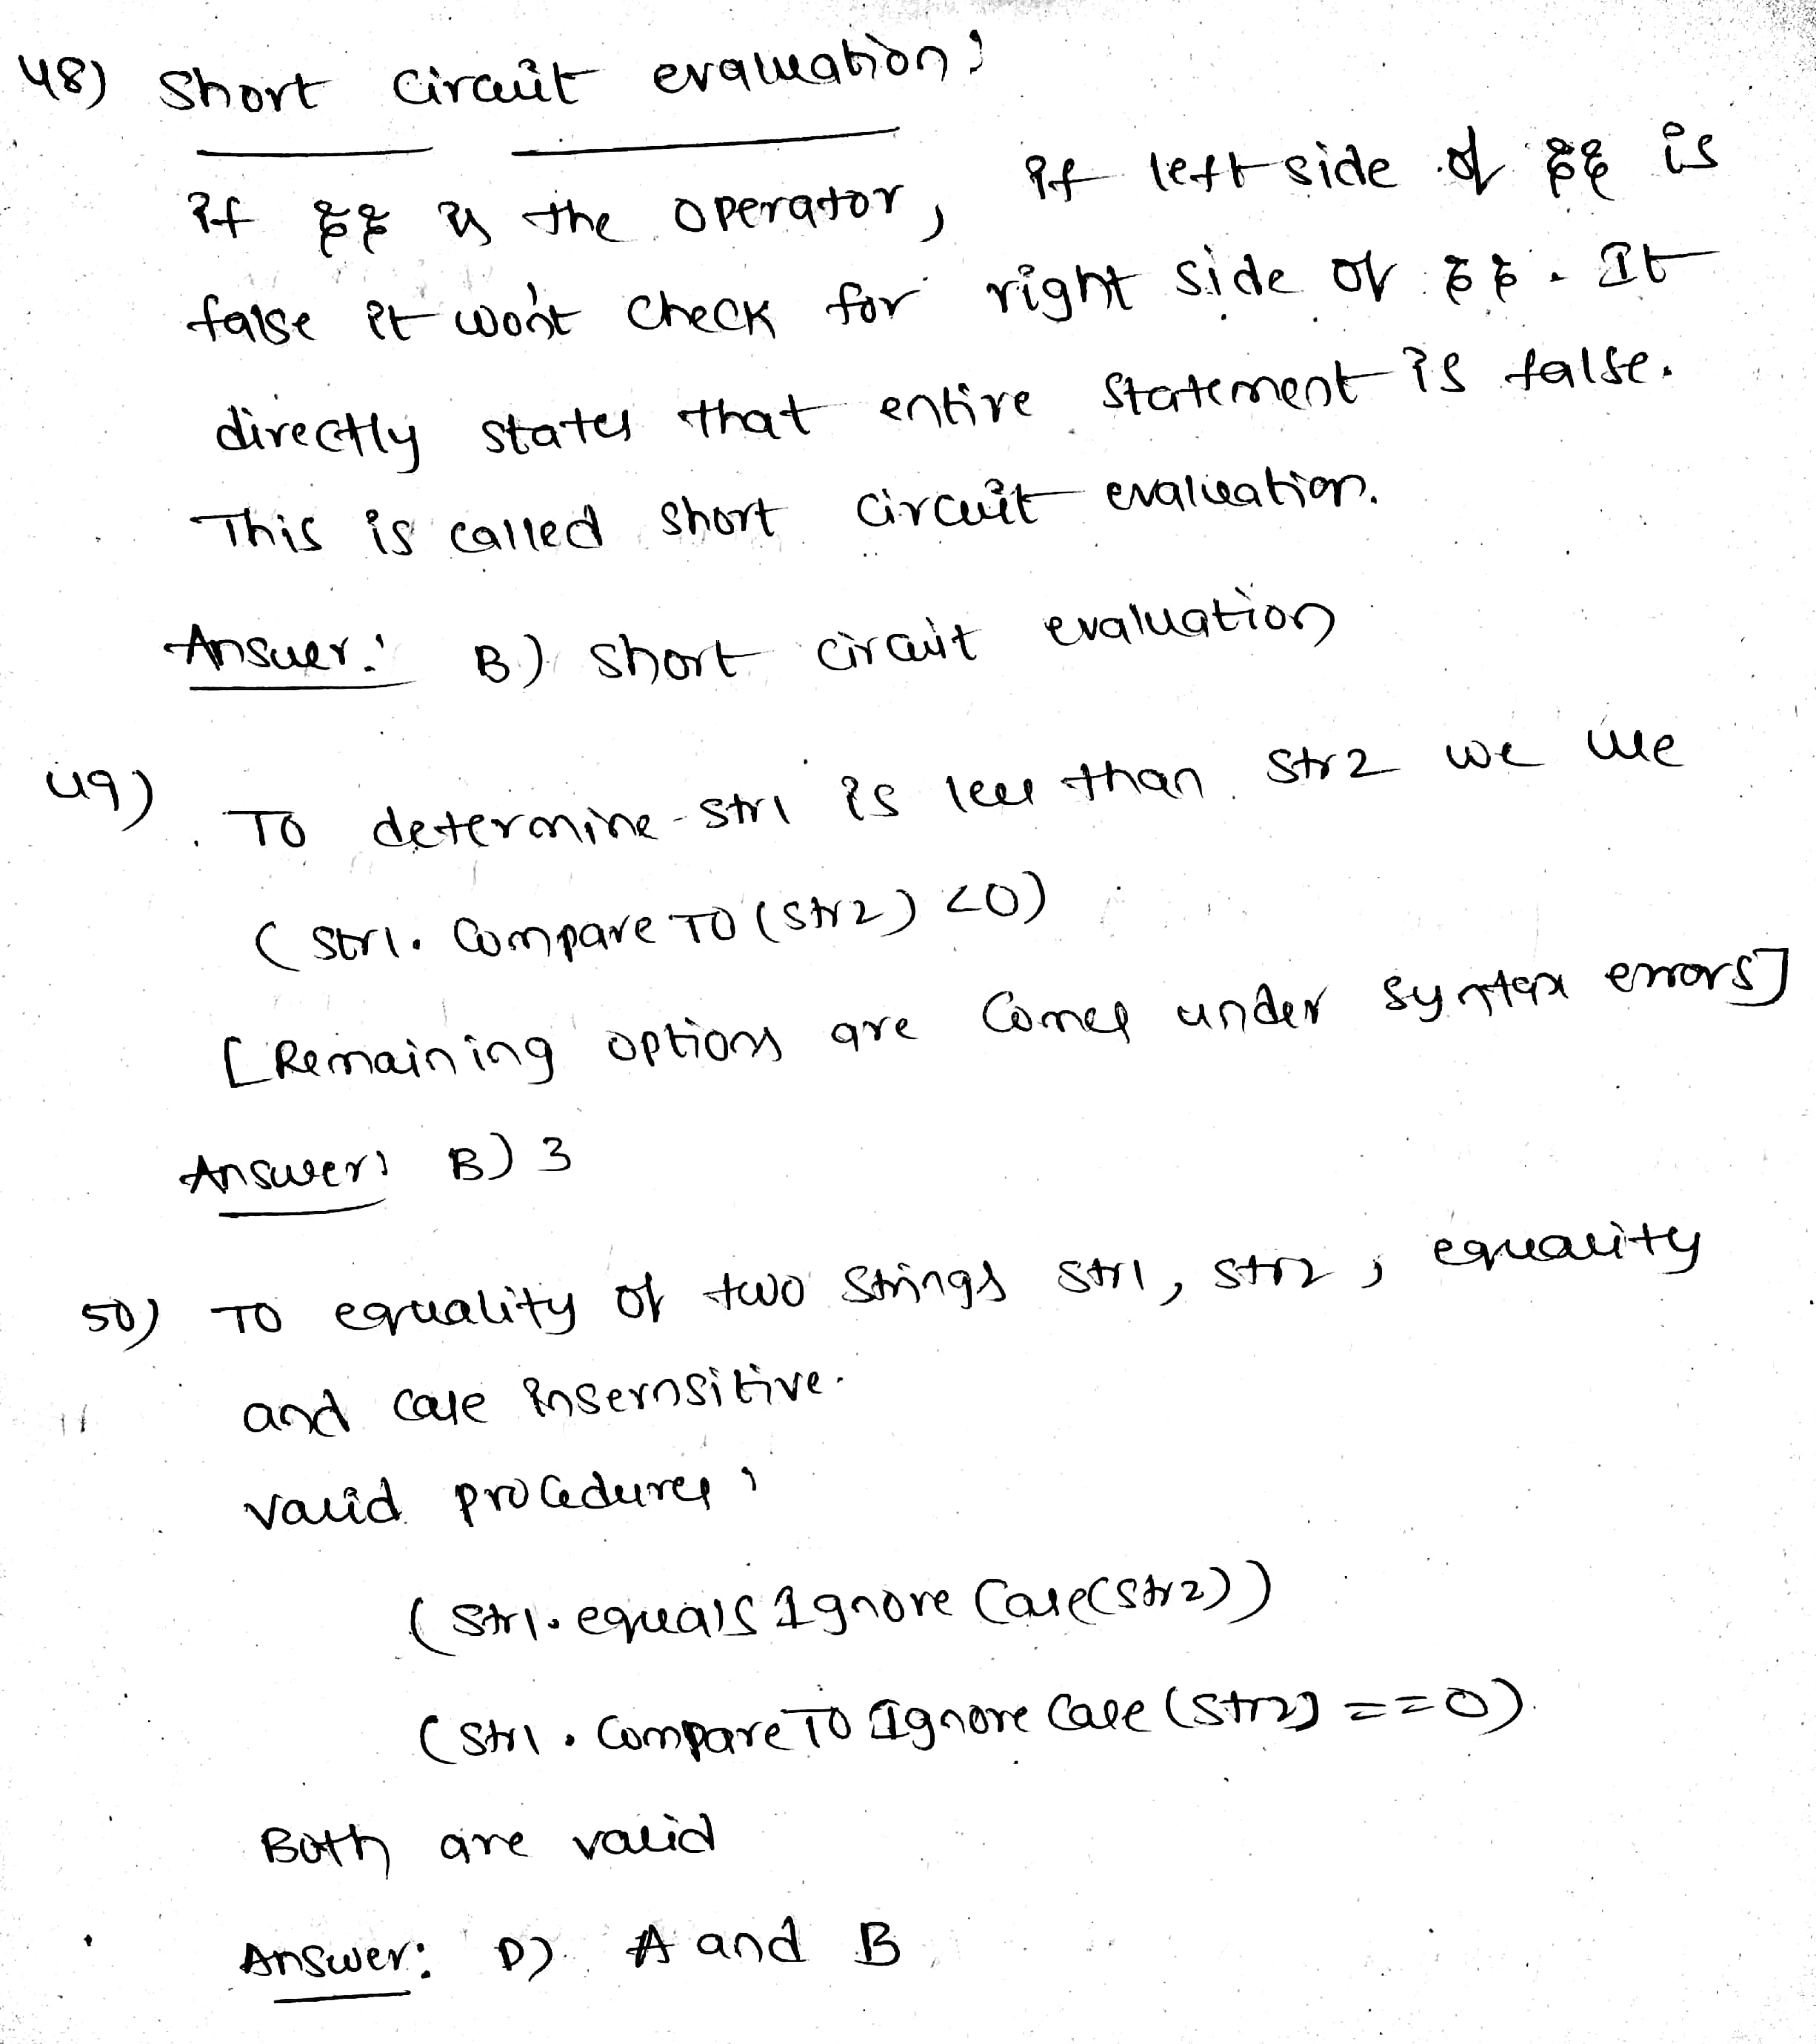 48) Short Circuit evaluation:
if && is the operator, if left side of && is
false it won't check for right side of &&. It
directly states that entire statement is false.
This is called short circuit evaluation.
Answer: B) short circuit evaluation
49) To determine str1 is less than str2 we use
(str1. Compare TO (str2) <0)
[Remaining options are comes under syntax errors]
Answer: B) 3
50) TO equality of two strings str1, str2, equality
and case insernsitive.
valid procedures:
(str1.equals Ignore Case(str2))
(str1. Compare TO Ignore Case (str2) ==0)
Both are valid
Answer: D) A and B